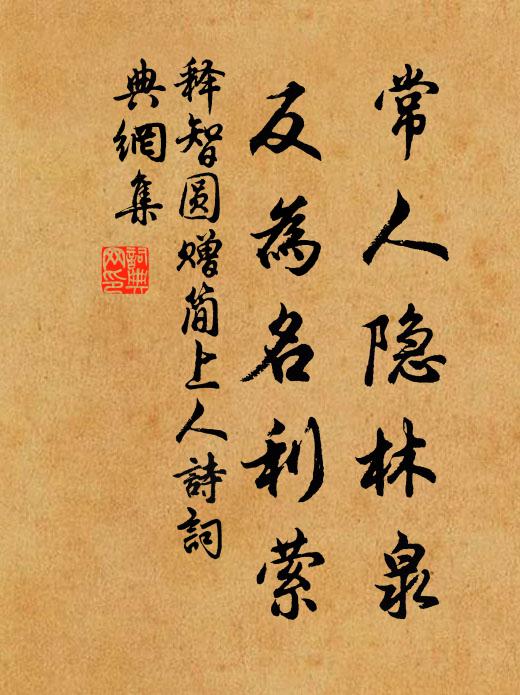 常人隐林泉
反為名利萦
释智圆赠简上人詩詞
典網集
詞典
网印